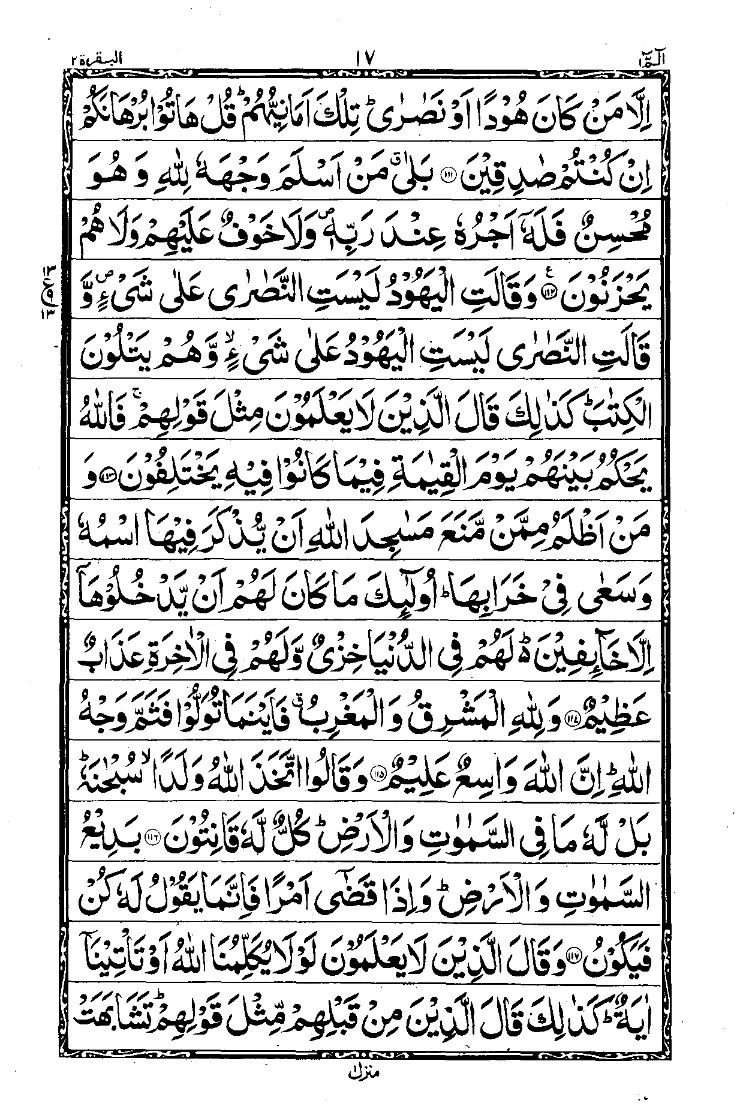 الٓمّٓ ١ ١٧ البقرة ٢
اِلَّا مَنْ كَانَ هُوْدًا اَوْ نَصٰرٰى ؕ تِلْكَ اَمَانِيُّهُمْ ؕ قُلْ هَاتُوْا بُرْهَانَكُمْ
اِنْ كُنْتُمْ صٰدِقِيْنَ ۝۱۱۱ بَلٰى ۗ مَنْ اَسْلَمَ وَجْهَهٗ لِلّٰهِ وَ هُوَ
مُحْسِنٌ فَلَهٗۤ اَجْرُهٗ عِنْدَ رَبِّهٖ ۪ وَلَا خَوْفٌ عَلَيْهِمْ وَلَا هُمْ
يَحْزَنُوْنَ ۝۱۱۲ وَقَالَتِ الْيَهُوْدُ لَيْسَتِ النَّصٰرٰى عَلٰى شَيْءٍ ۪ وَّ
قَالَتِ النَّصٰرٰى لَيْسَتِ الْيَهُوْدُ عَلٰى شَيْءٍ ۙ وَّهُمْ يَتْلُوْنَ
الْكِتٰبَ ؕ كَذٰلِكَ قَالَ الَّذِيْنَ لَا يَعْلَمُوْنَ مِثْلَ قَوْلِهِمْ ۚ فَاللّٰهُ
يَحْكُمُ بَيْنَهُمْ يَوْمَ الْقِيٰمَةِ فِيْمَا كَانُوْا فِيْهِ يَخْتَلِفُوْنَ ۝۱۱۳ وَ
مَنْ اَظْلَمُ مِمَّنْ مَّنَعَ مَسٰجِدَ اللّٰهِ اَنْ يُّذْكَرَ فِيْهَا اسْمُهٗ
وَسَعٰى فِيْ خَرَابِهَا ؕ اُولٰٓئِكَ مَا كَانَ لَهُمْ اَنْ يَّدْخُلُوْهَاۤ
اِلَّا خَآئِفِيْنَ ؕ۬ لَهُمْ فِي الدُّنْيَا خِزْيٌ وَّلَهُمْ فِي الْاٰخِرَةِ عَذَابٌ
عَظِيْمٌ ۝۱۱۴ وَلِلّٰهِ الْمَشْرِقُ وَالْمَغْرِبُ ۗ فَاَيْنَمَا تُوَلُّوْا فَثَمَّ وَجْهُ
اللّٰهِ ؕ اِنَّ اللّٰهَ وَاسِعٌ عَلِيْمٌ ۝۱۱۵ وَقَالُوا اتَّخَذَ اللّٰهُ وَلَدًا ۙ سُبْحٰنَهٗ ؕ
بَلْ لَّهٗ مَا فِي السَّمٰوٰتِ وَالْاَرْضِ ؕ كُلٌّ لَّهٗ قَانِتُوْنَ ۝۱۱۶ بَدِيْعُ
السَّمٰوٰتِ وَالْاَرْضِ ؕ وَاِذَا قَضٰٓى اَمْرًا فَاِنَّمَا يَقُوْلُ لَهٗ كُنْ
فَيَكُوْنُ ۝۱۱۷ وَقَالَ الَّذِيْنَ لَا يَعْلَمُوْنَ لَوْلَا يُكَلِّمُنَا اللّٰهُ اَوْ تَاْتِيْنَاۤ
اٰيَةٌ ؕ كَذٰلِكَ قَالَ الَّذِيْنَ مِنْ قَبْلِهِمْ مِّثْلَ قَوْلِهِمْ ؕ تَشَابَهَتْ
منزل ١